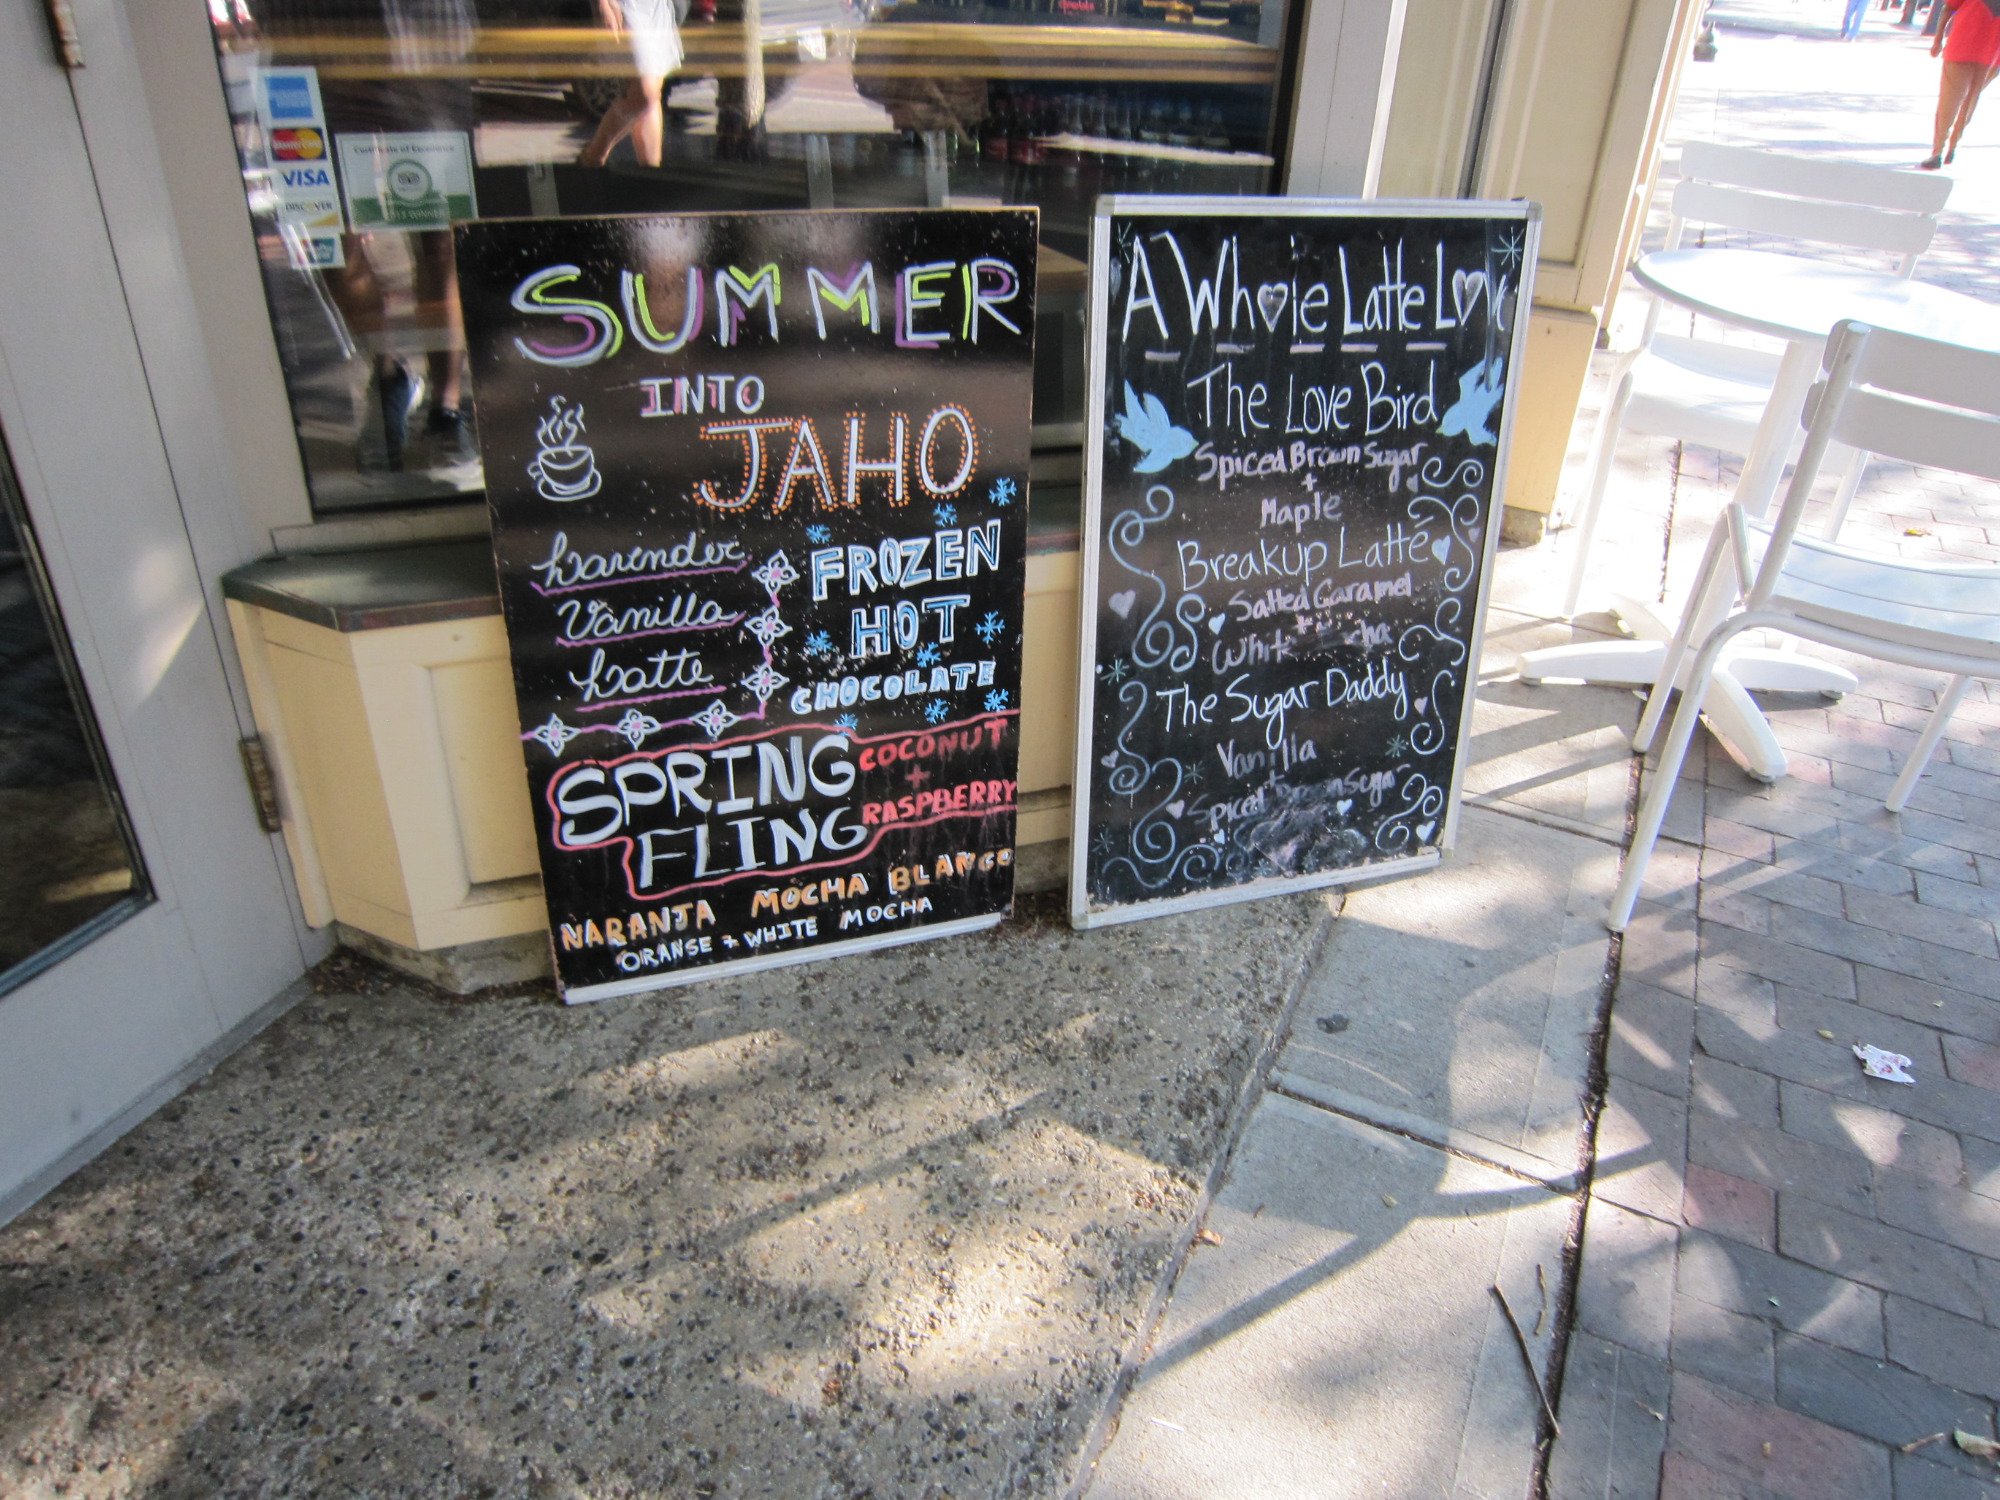 MasterCard
VISA
DISCOVER
Certificate of Excellence
SUMMER
INTO
JAHO
Lavender
Vanilla
Latte
FROZEN
HOT
CHOCOLATE
SPRING
FLING
COCONUT
+
RASPBERRY
NARANJA MOCHA BLANCO
ORANSE + WHITE MOCHA
A Whole Latte Love
The Love Bird
Spiced Brown Sugar
+
Maple
Breakup Latte
Salted Caramel
+
White Mocha
The Sugar Daddy
Vanilla
+
Spiced Brown Sugar